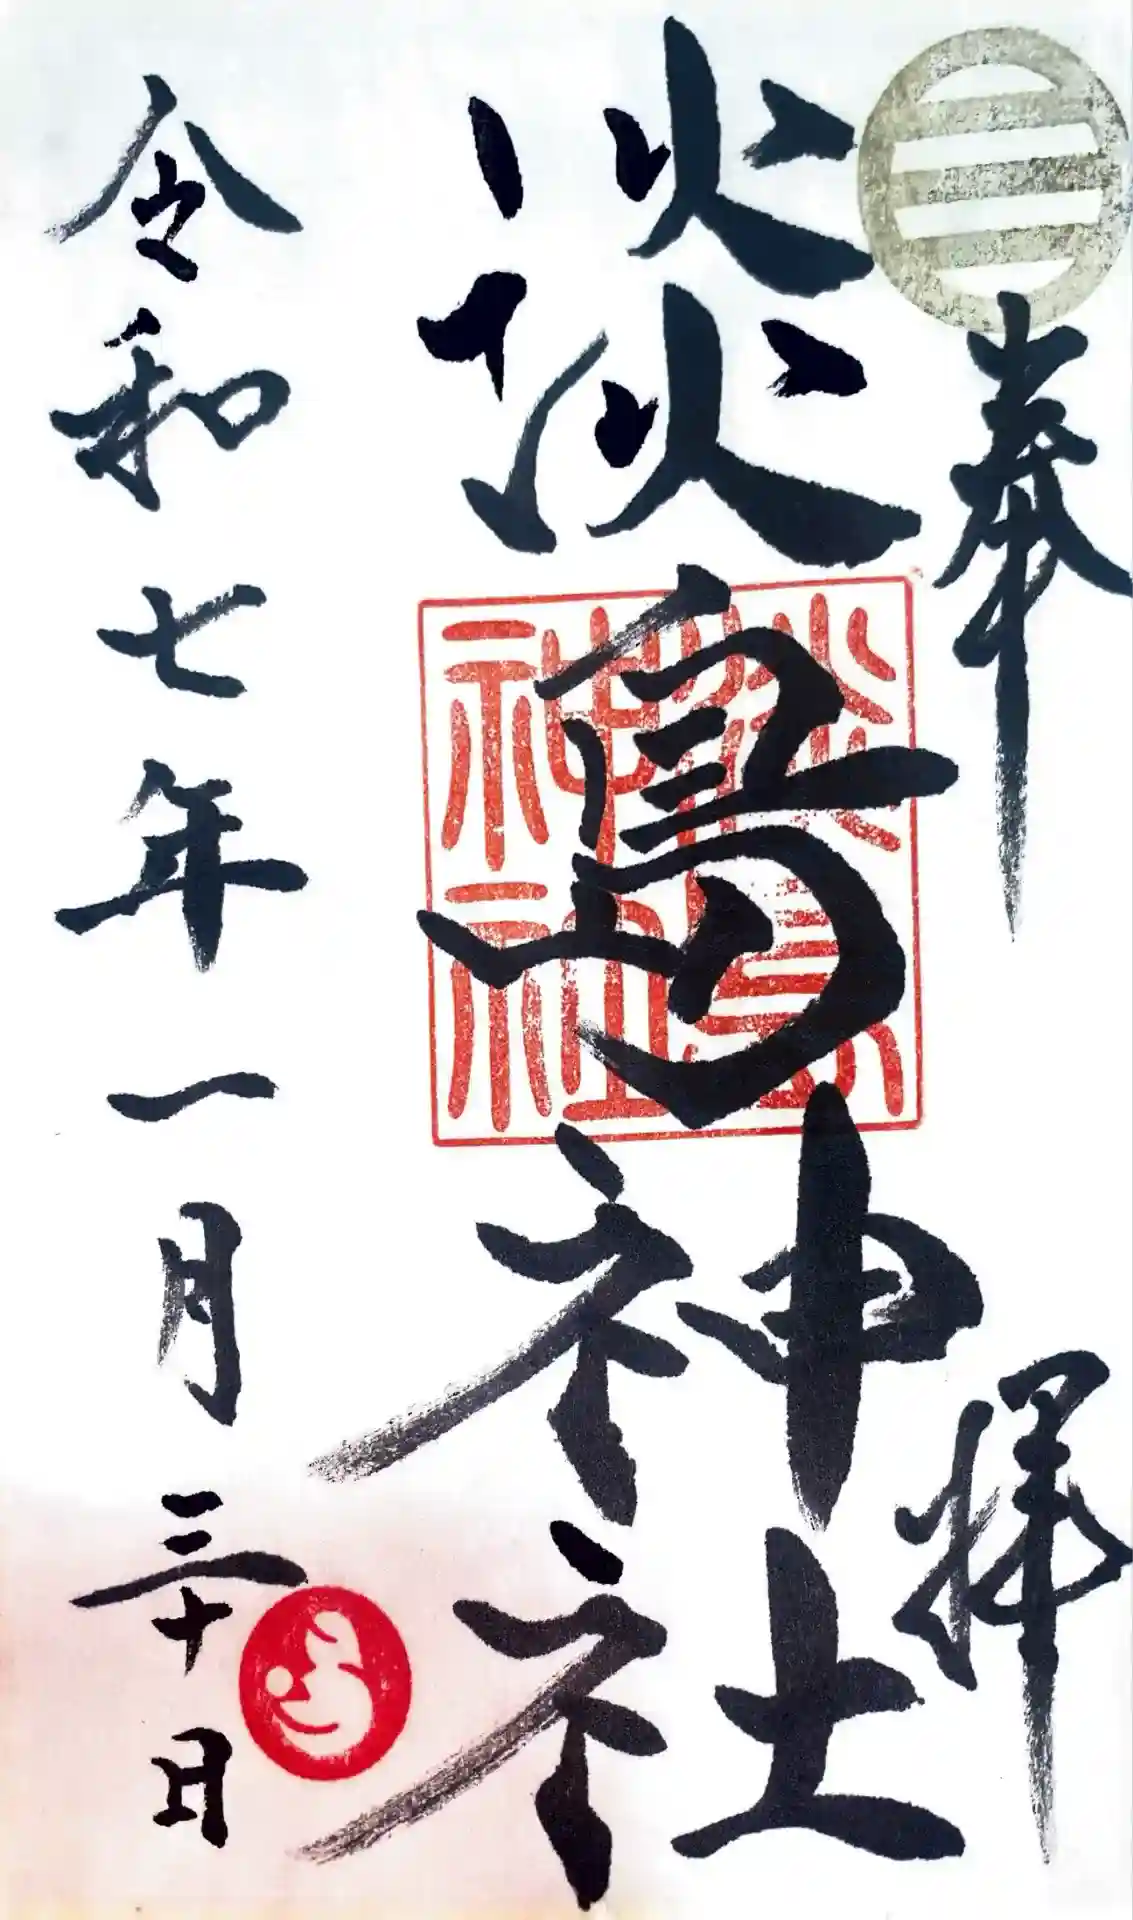 奉拝
淡嶋神社
淡島神社
令和七年一月三十日